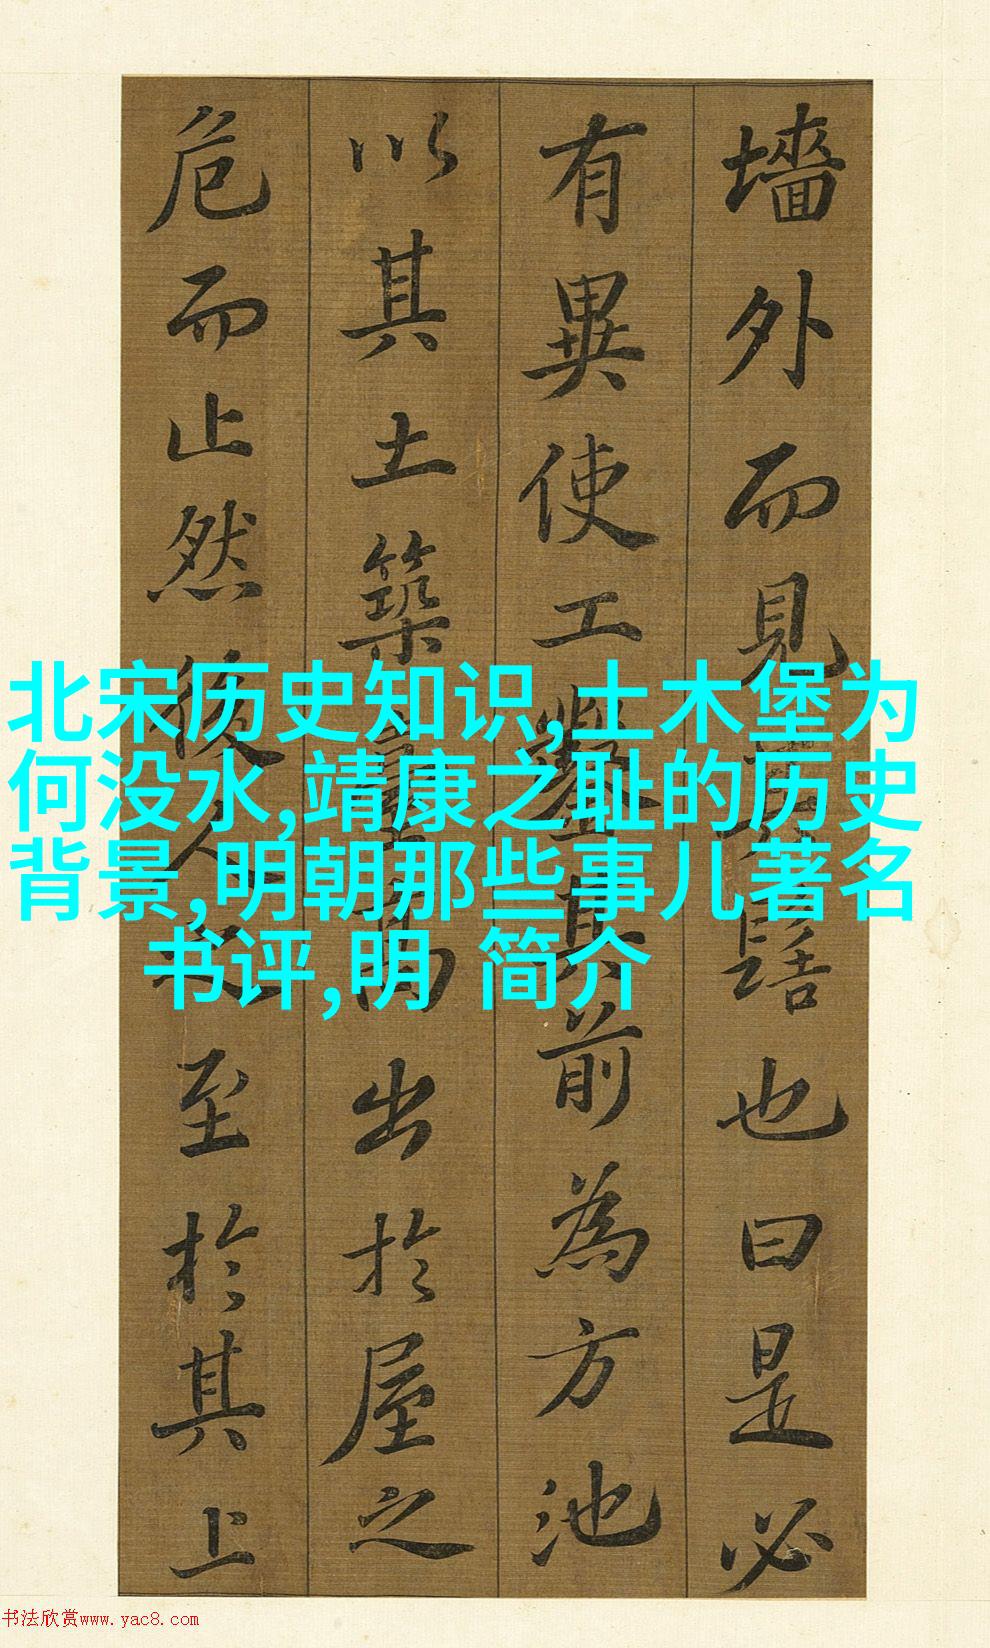 墻外而見其髻也曰是必
有異使工鑿其前為方池
以其土築臺高出於屋之
危而止然後人之至於其上
北宋历史知识,土木堡为
何没水,靖康之耻的历史
背景,明朝那些事儿著名
书评,明 简介
书法欣赏www.yac8.com